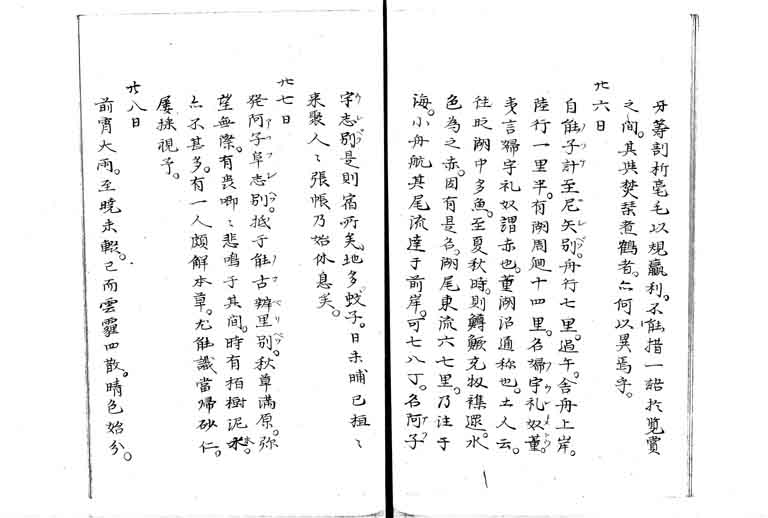 牙籌剖析毫毛以規贏利。不能措一語於覽賞
之間。其與焚琹煮鶴者。亦何以異焉乎。
廿六日
自能子計至尼矢別。舟行七里。過午。舎舟上岸。
陸行一里半。有湖周廻十四里。名婦宇礼奴董。
夷言婦宇礼奴謂赤也。董湖沼通称也。土人云。
往昔湖中多魚。至夏秋時。則鱒鱖充牣襍遝。水
色為之赤。因有是名。湖尾東流六七里。乃注于
海。小舟航其尾流達于前岸。可七八丁。名阿子
宇志別。是則宿所矣。地多蚊子。日未晡已桓〻
来聚人〻張帳乃始休息矣。
廿七日
発阿子阜志別。抵子能古辨里別。秋草満原。弥
望無際。有喪啣〻悲鳴于其間。時有栢樹泥水。
亦不甚多。有一人頗解本草。尤能識當帰砂仁。
屡採視予。
廿八日
前宵大雨。至暁未輟。已而雲霾四散。晴色始分。